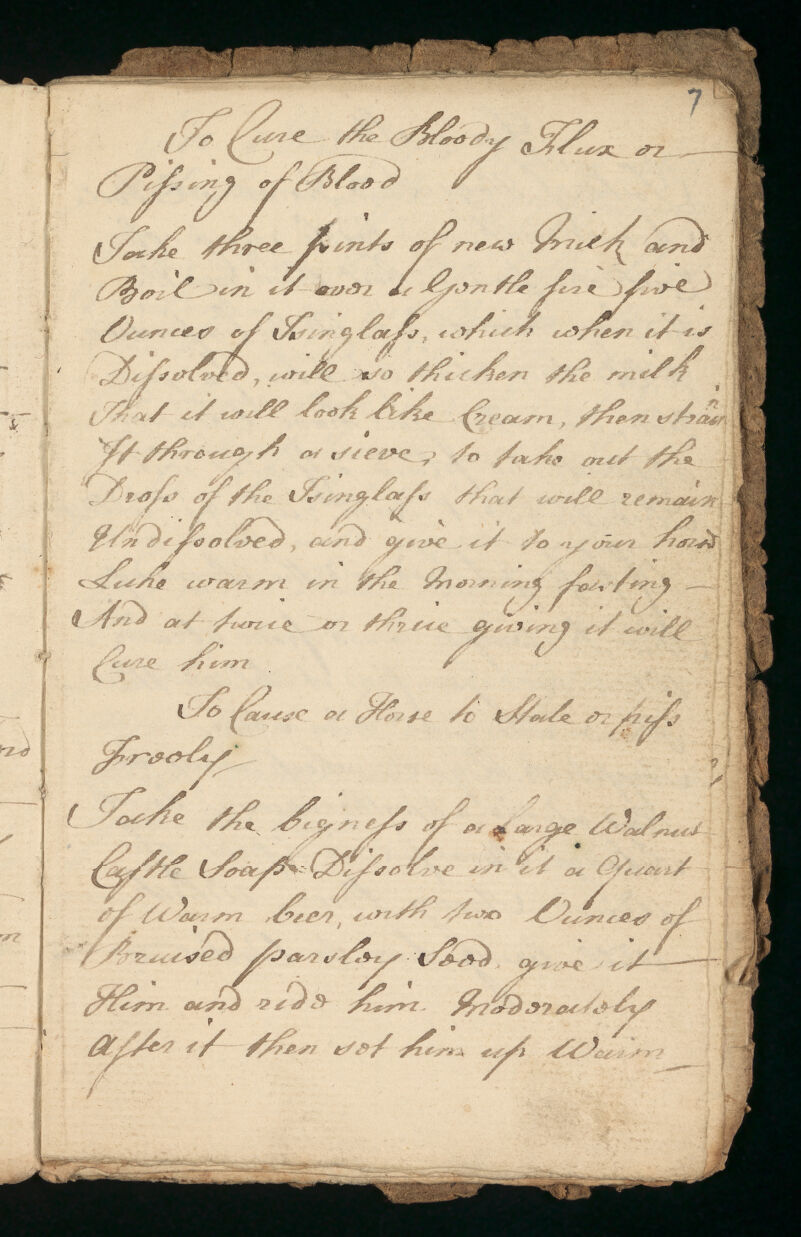 7
To Cure the Bloody Flux or
Pissing of Blood
Take three pints of new milk and
Boil in it over a Gentle fire five
Ounces of Isinglass, which when it is
Dissolved, will so thicken the milk
That it will look like Cream, then strain
It through a sieve, to take out the
Dross of the Isinglass that will remain
Undissolved, and give it to your
Luke warm in the Morning fasting
And at twice or thrice giving it will
Cure him
To Cause a Horse to Stale or piss
Freely
Take the bigness of a Large Walnut
Castle Soap Dissolve in it a Quart
of Warm beer, with two Ounces of
Bruised parsley Seed, give it
Him and ride him Moderately
After it then set him up Warm